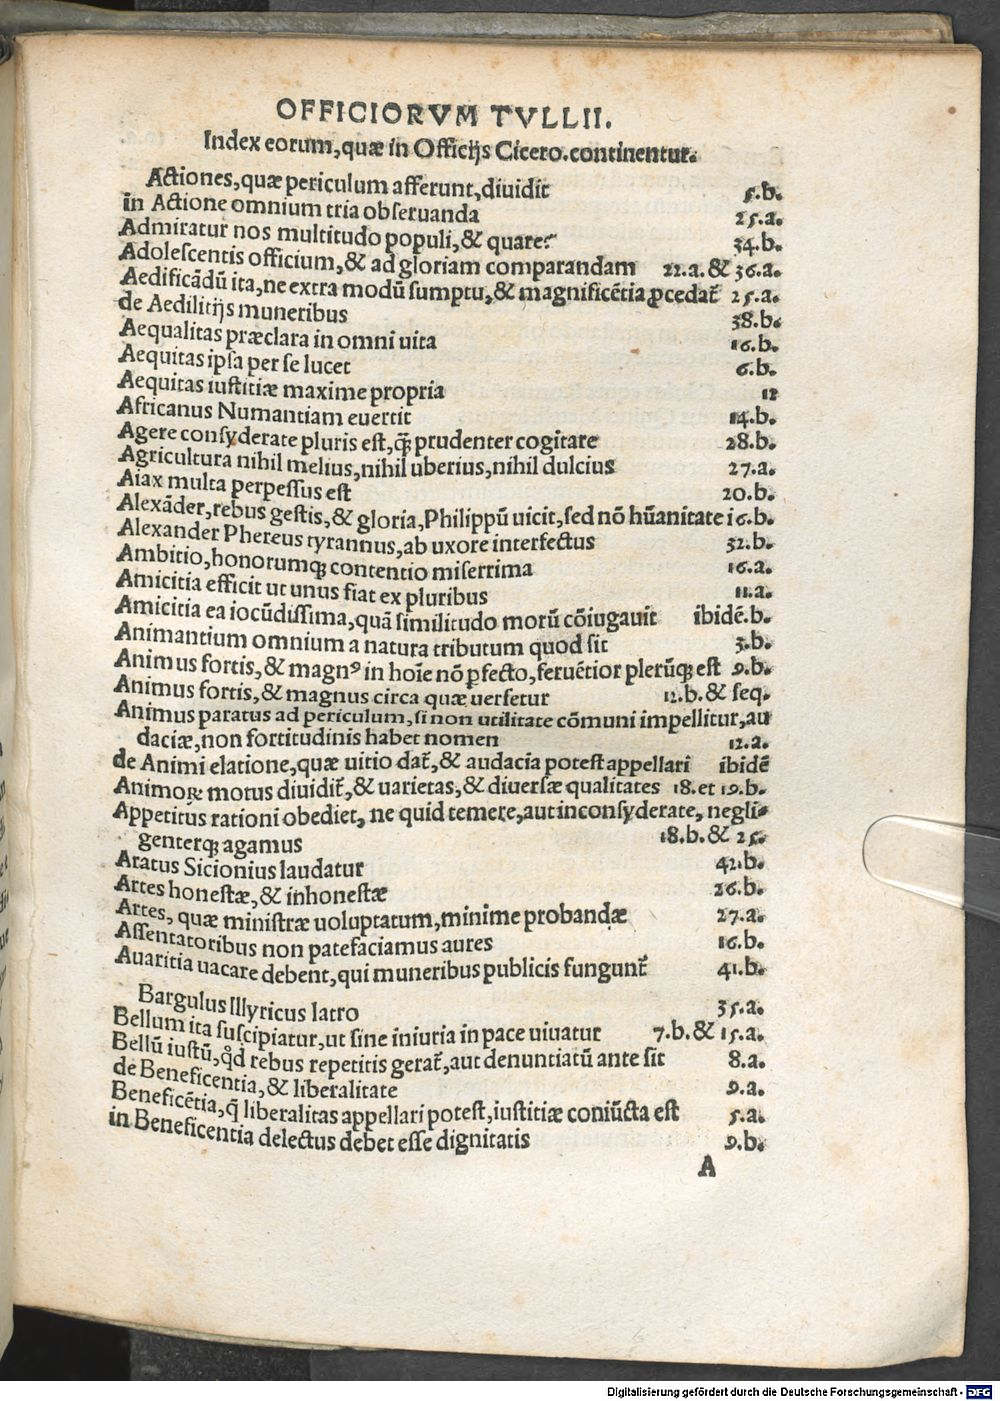 OFFICIORVM TVLLII.
Index eorum, quæ in Officijs Cicero. continentur.
Actiones, quæ periculum afferunt, diuidit 5.b.
in Actione omnium tria obſeruanda 25.a.
Admiratur nos multitudo populi, & quare? 34.b.
Adoleſcentis officium, & ad gloriam comparandam 22.a. & 36.a.
Aedificādū ita, ne extra modū ſumptu, & magnificētia ꝓcedat̃ 25.a.
de Aedilitijs muneribus 38.b.
Aequalitas præclara in omni uita 16.b.
Aequitas ipſa per ſe lucet 6.b.
Aequitas iuſtitiæ maxime propria 12
Africanus Numantiam euertit 14.b.
Agere conſyderate pluris eſt, q̃ꝫ prudenter cogitare 28.b.
Agricultura nihil melius, nihil uberius, nihil dulcius 27.a.
Aiax multa perpeſſus eſt 20.b.
Alexāder, rebus geſtis, & gloria, Philippū uicit, ſed nō hūanitate 16.b.
Alexander Phereus tyrannus, ab uxore interfectus 32.b.
Ambitio, honorumqꝫ contentio miſerrima 16.a.
Amicitia efficit ut unus fiat ex pluribus 11.a.
Amicitia ea iocūdiſſima, quā ſimilitudo morū cōiugauit ibidē.b.
Animantium omnium a natura tributum quod ſit 3.b.
Animus fortis, & magnꝰ in hoīe nō ꝑfecto, feruētior plerūqꝫ eſt 9.b.
Animus fortis, & magnus circa quæ uerſetur 12.b. & ſeq.
Animus paratus ad periculum, ſi non utilitate cōmuni impellitur, au
daciæ, non fortitudinis habet nomen 12.a.
de Animi elatione, quæ uitio dat̃, & audacia poteſt appellari ibidē
Animoꝝ motus diuidit̃, & uarietas, & diuerſæ qualitates 18. et 19.b.
Appetitus rationi obediet, ne quid temere, aut inconſyderate, negli-
genterqꝫ agamus 18.b. & 25.
Aratus Sicionius laudatur 42.b.
Artes honeſtæ, & inhoneſtæ 26.b.
Artes, quæ miniſtræ uoluptatum, minime probandæ 27.a.
Aſſentatoribus non patefaciamus aures 16.b.
Auaritia uacare debent, qui muneribus publicis fungunt̃ 41.b.
Bargulus Illyricus latro 35.a.
Bellum ita ſuſcipiatur, ut ſine iniuria in pace uiuatur 7.b. & 15.a.
Bellū iuſtū, qd̓ rebus repetitis gerat̃, aut denuntiatū ante ſit 8.a.
de Beneficentia, & liberalitate 9.a.
Beneficētia, q̃ liberalitas appellari poteſt, iuſtitiæ coniūcta eſt 5.a.
in Beneficentia delectus debet eſſe dignitatis 9.b.
A
Digitalisierung gefördert durch die Deutsche Forschungsgemeinschaft - DFG